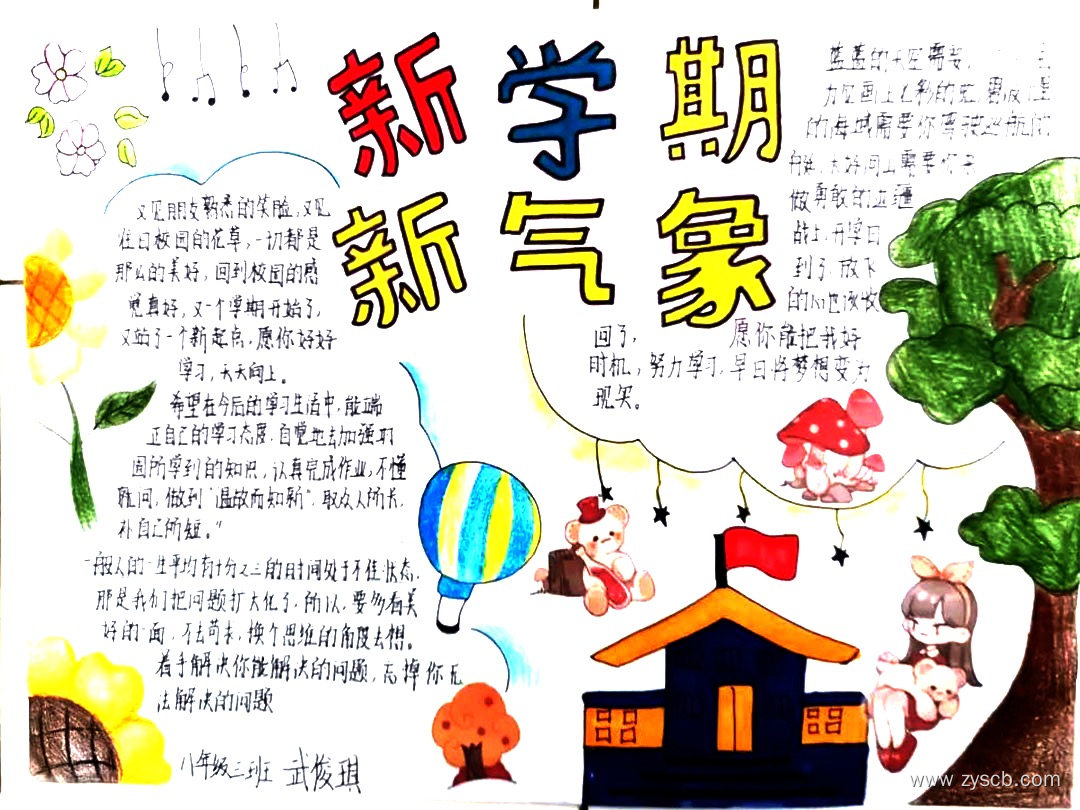 新学期
新气象
又见朋友熟悉的笑脸,又见
往日校园的花草,一切都是
那么的美好,回到校园的感
觉真好,又一个学期开始了,
又站了一个新起点,愿你好好
学习,天天向上。
希望在今后的学习生活中,能端
正自己的学习态度,自觉地去加强巩
固所学到的知识,认真完成作业,不懂
就问,做到“温故而知新”,取众人所长,
补自己所短。”
一般人的一生平均有十分之三的时间处于不佳状态,
那是我们把问题打大化了,所以,要多看美
好的一面,不去苛求,换个思维的角度去想。
着手解决你能解决的问题,忘掉你无
法解决的问题
八年级三班 武俊琪
蓝蓝的天空需要
力绘画上七彩的
的海域需要你驾驶巡航的
大好河山需要你去
做勇敢的边疆
战士,开学日
到了,放下
的心也该收
回了, 愿你能把我好
时机,努力学习,早日将梦想变为
现实。
www.zyscb.com